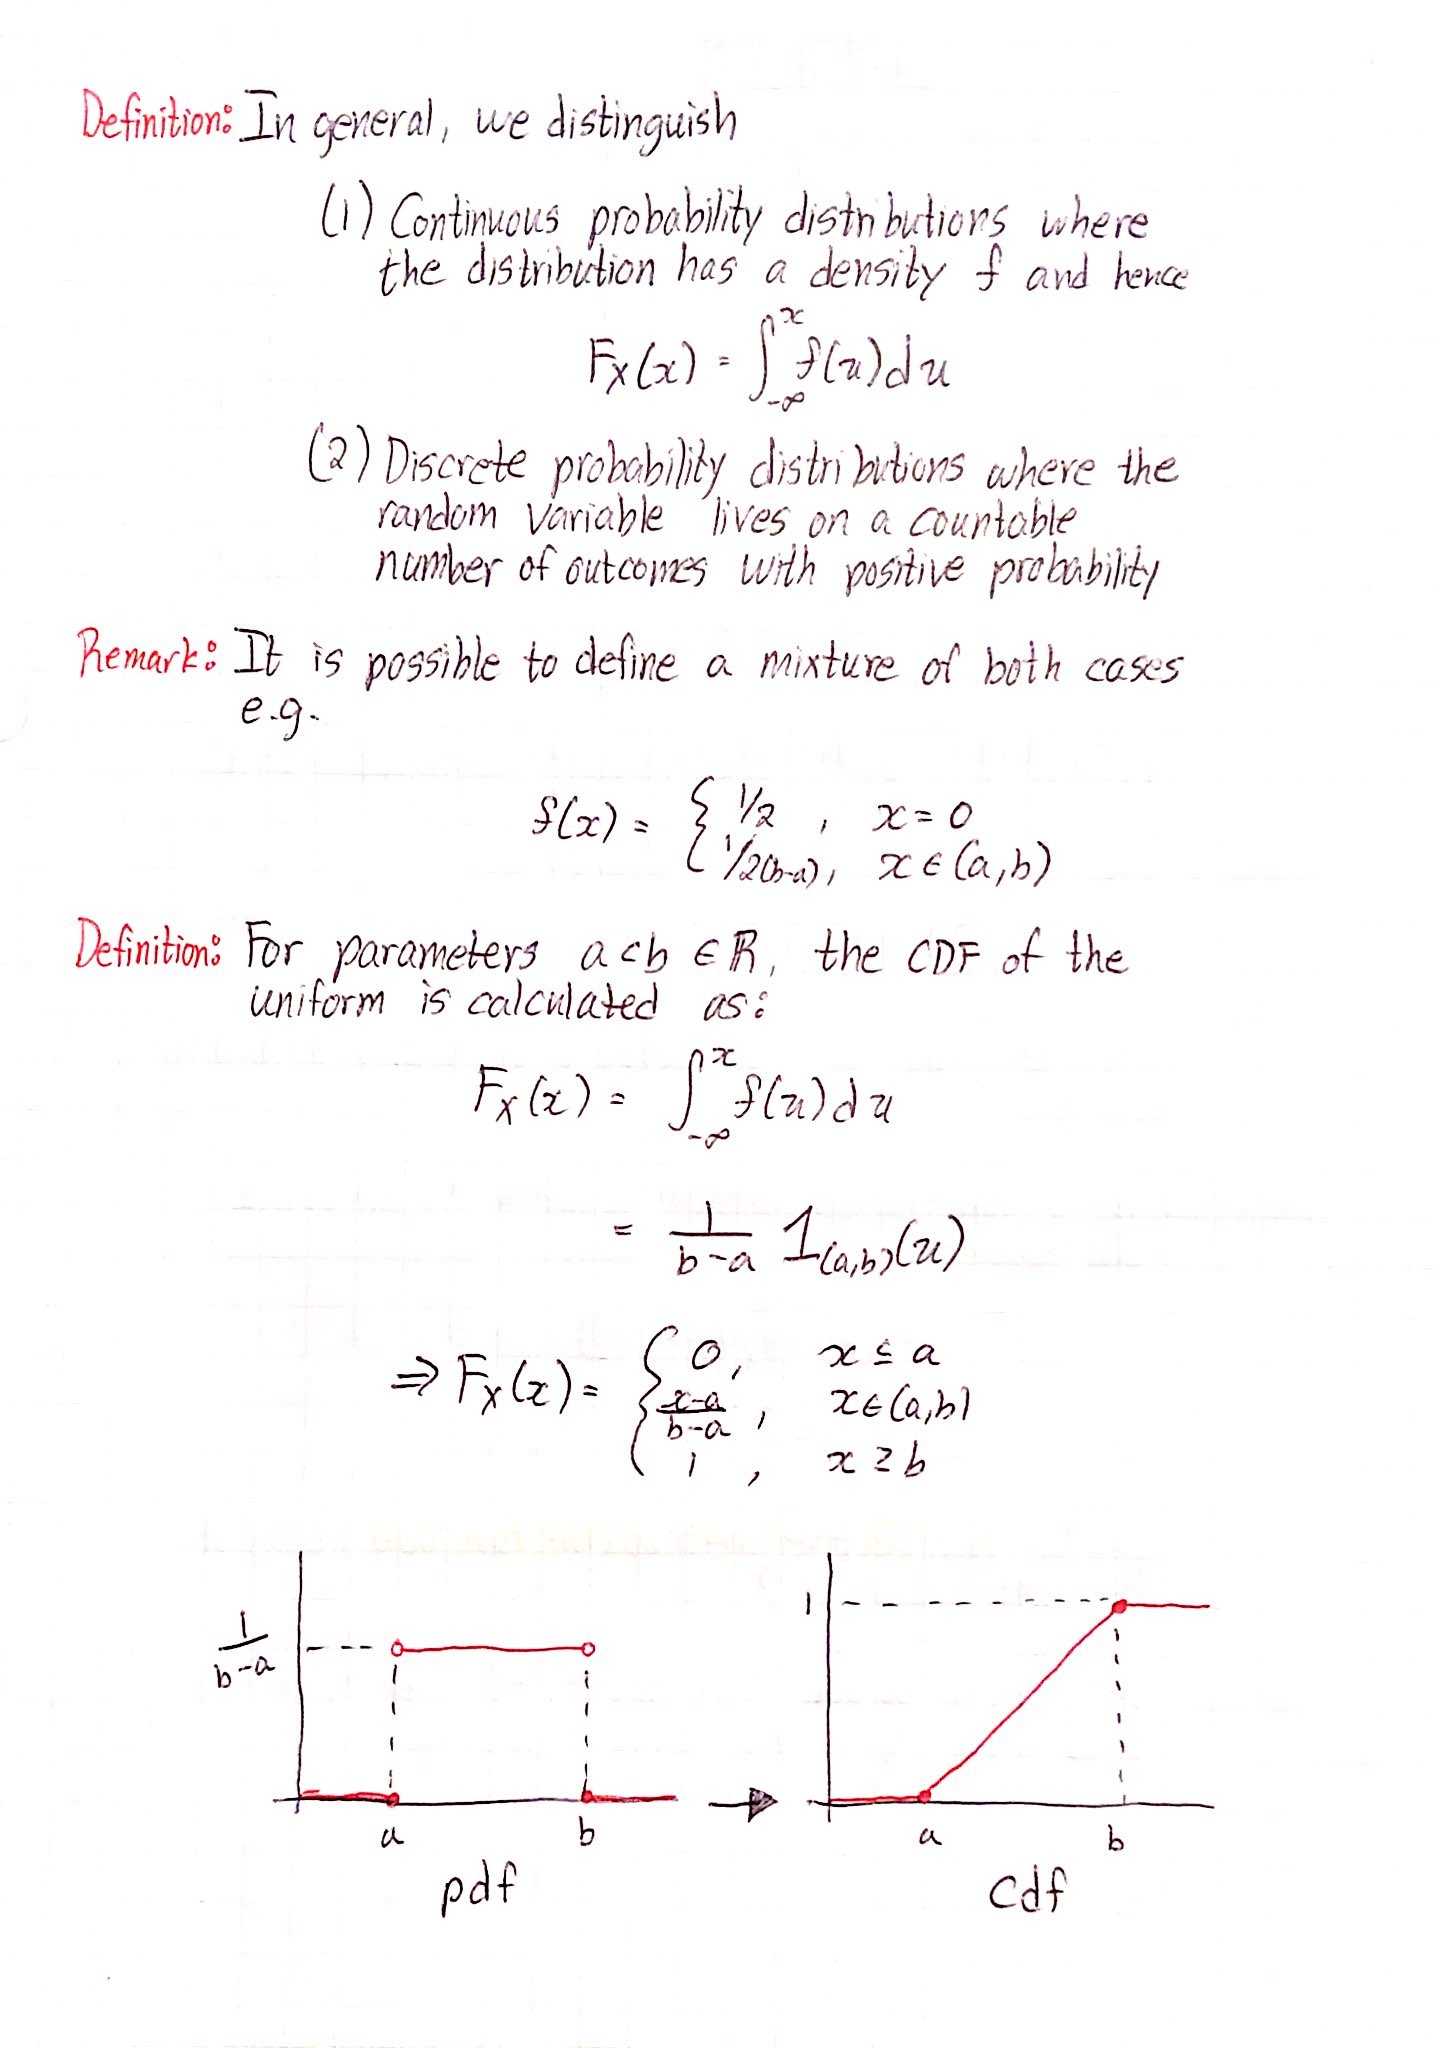 Definition: In general, we distinguish
(1) Continuous probability distributions where
the distribution has a density f and hence
F_X(x) = ∫_{-∞}^{x} f(u)du
(2) Discrete probability distributions where the
random variable lives on a countable
number of outcomes with positive probability
Remark: It is possible to define a mixture of both cases
e.g.
f(x) = { 1/2 , x = 0
1/2(b-a), x ∈ (a,b)
Definition: For parameters a<b ∈ ℝ, the CDF of the
uniform is calculated as:
F_X(x) = ∫_{-∞}^{x} f(u)du
= 1/(b-a) 1_{(a,b)}(u)
⇒ F_X(x) = { 0, x ≤ a
(x-a)/(b-a), x ∈ (a,b)
1, x ≥ b
1/(b-a)
a b
pdf
1
a b
cdf